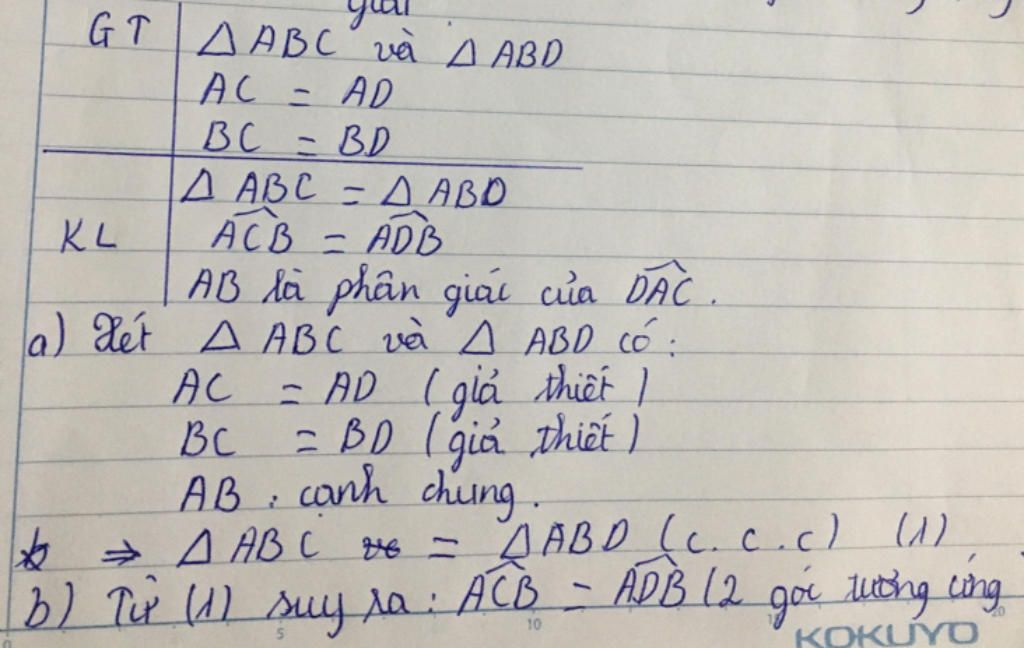 giải
GT ΔABC và ΔABD
AC = AD
BC = BD
ΔABC = ΔABD
KL ACB = ADB
AB là phân giác của DAC.
a) Xét ΔABC và ΔABD có:
AC = AD (giả thiết)
BC = BD (giả thiết)
AB : cạnh chung.
⇒ ΔABC = ΔABD (c.c.c) (1)
b) Từ (1) suy ra : ACB = ADB (2 góc tương ứng
5 10 20
KOKUYO